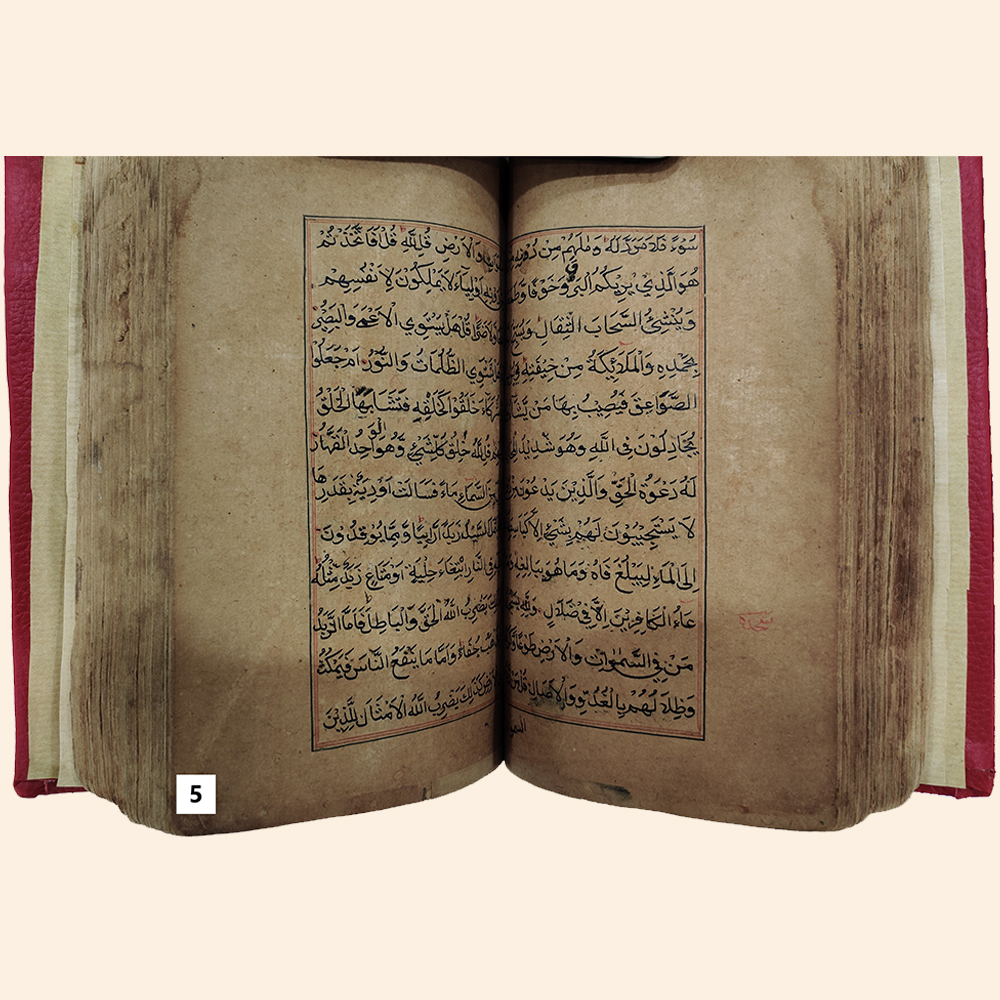 سُوْءً فَلَا مَرَدَّ لَهُ وَمَالَهُمْ مِنْ دُونِهِ
هُوَ الَّذِي يُرِيكُمُ الْبَرْقَ وَخَوْفًا
وَيُنْشِئُ السَّحَابَ الثِّقَالَ
بِحَمْدِهِ وَالْمَلَائِكَةُ مِنْ خِيفَتِهِ
الصَّوَاعِقَ فَيُصِيبُ بِهَا مَنْ
يُجَادِلُونَ فِي اللَّهِ وَهُوَ شَدِيدُ
لَهُ دَعْوَةُ الْحَقِّ وَالَّذِينَ يَدْعُونَ
لَا يَسْتَجِيبُونَ لَهُمْ بِشَيْءٍ إِلَّا
إِلَى الْمَاءِ لِيَبْلُغَ فَاهُ وَمَا هُوَ بِبَالِغِهِ
عَاءُ الْكَافِرِينَ إِلَّا فِي ضَلَالٍ وَلِلَّهِ
سجدة
مَنْ فِي السَّمٰوَاتِ وَالْأَرْضِ طَوْعًا
وَظِلَالُهُمْ بِالْغُدُوِّ وَالْآصَالِ قُلْ
وَالْأَرْضِ قُلِ اللَّهُ قُلْ أَفَاتَّخَذْتُمْ
أَوْلِيَاءَ لَا يَمْلِكُونَ لِأَنْفُسِهِمْ
وَلَا ضَرًّا قُلْ هَلْ يَسْتَوِي الْأَعْمَى وَالْبَصِيرُ
تَسْتَوِي الظُّلُمَاتُ وَالنُّورُ أَمْ جَعَلُوا
خَلَقُوا كَخَلْقِهِ فَتَشَابَهَ الْخَلْقُ
قُلِ اللَّهُ خَالِقُ كُلِّ شَيْءٍ وَهُوَ الْوَاحِدُ الْقَهَّارُ
مِنَ السَّمَاءِ مَاءً فَسَالَتْ أَوْدِيَةٌ بِقَدَرِهَا
السَّيْلُ زَبَدًا رَابِيًا وَمِمَّا يُوقِدُونَ
فِي النَّارِ ابْتِغَاءَ حِلْيَةٍ أَوْ مَتَاعٍ زَبَدٌ مِثْلُهُ
يَضْرِبُ اللَّهُ الْحَقَّ وَالْبَاطِلَ فَأَمَّا الزَّبَدُ
جُفَاءً وَأَمَّا مَا يَنْفَعُ النَّاسَ فَيَمْكُثُ
كَذٰلِكَ يَضْرِبُ اللَّهُ الْأَمْثَالَ لِلَّذِينَ
5